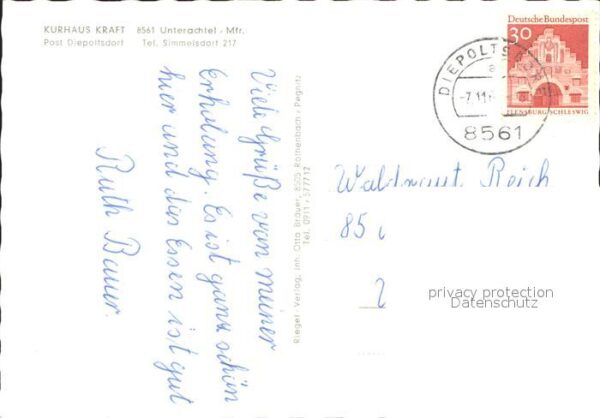 KURHAUS KRAFT 8561 Unterachtel - Mfr.
Post Diepoltsdorf Tel. Simmelsdorf 217
Viele Grüße von meiner
Erholung. Es ist ganz schön
hier und das Essen ist gut
Ruth Bauer.
Riegel-Verlag, Inh. Otto Brauer, 8505 Röthenbach / Pegnitz
Tel. 0911 / 577712
Deutsche Bundespost
30
FLENSBURG/SCHLESWIG
-7.11.
8561
Waltraut Reich
85
2
privacy protection
Datenschutz